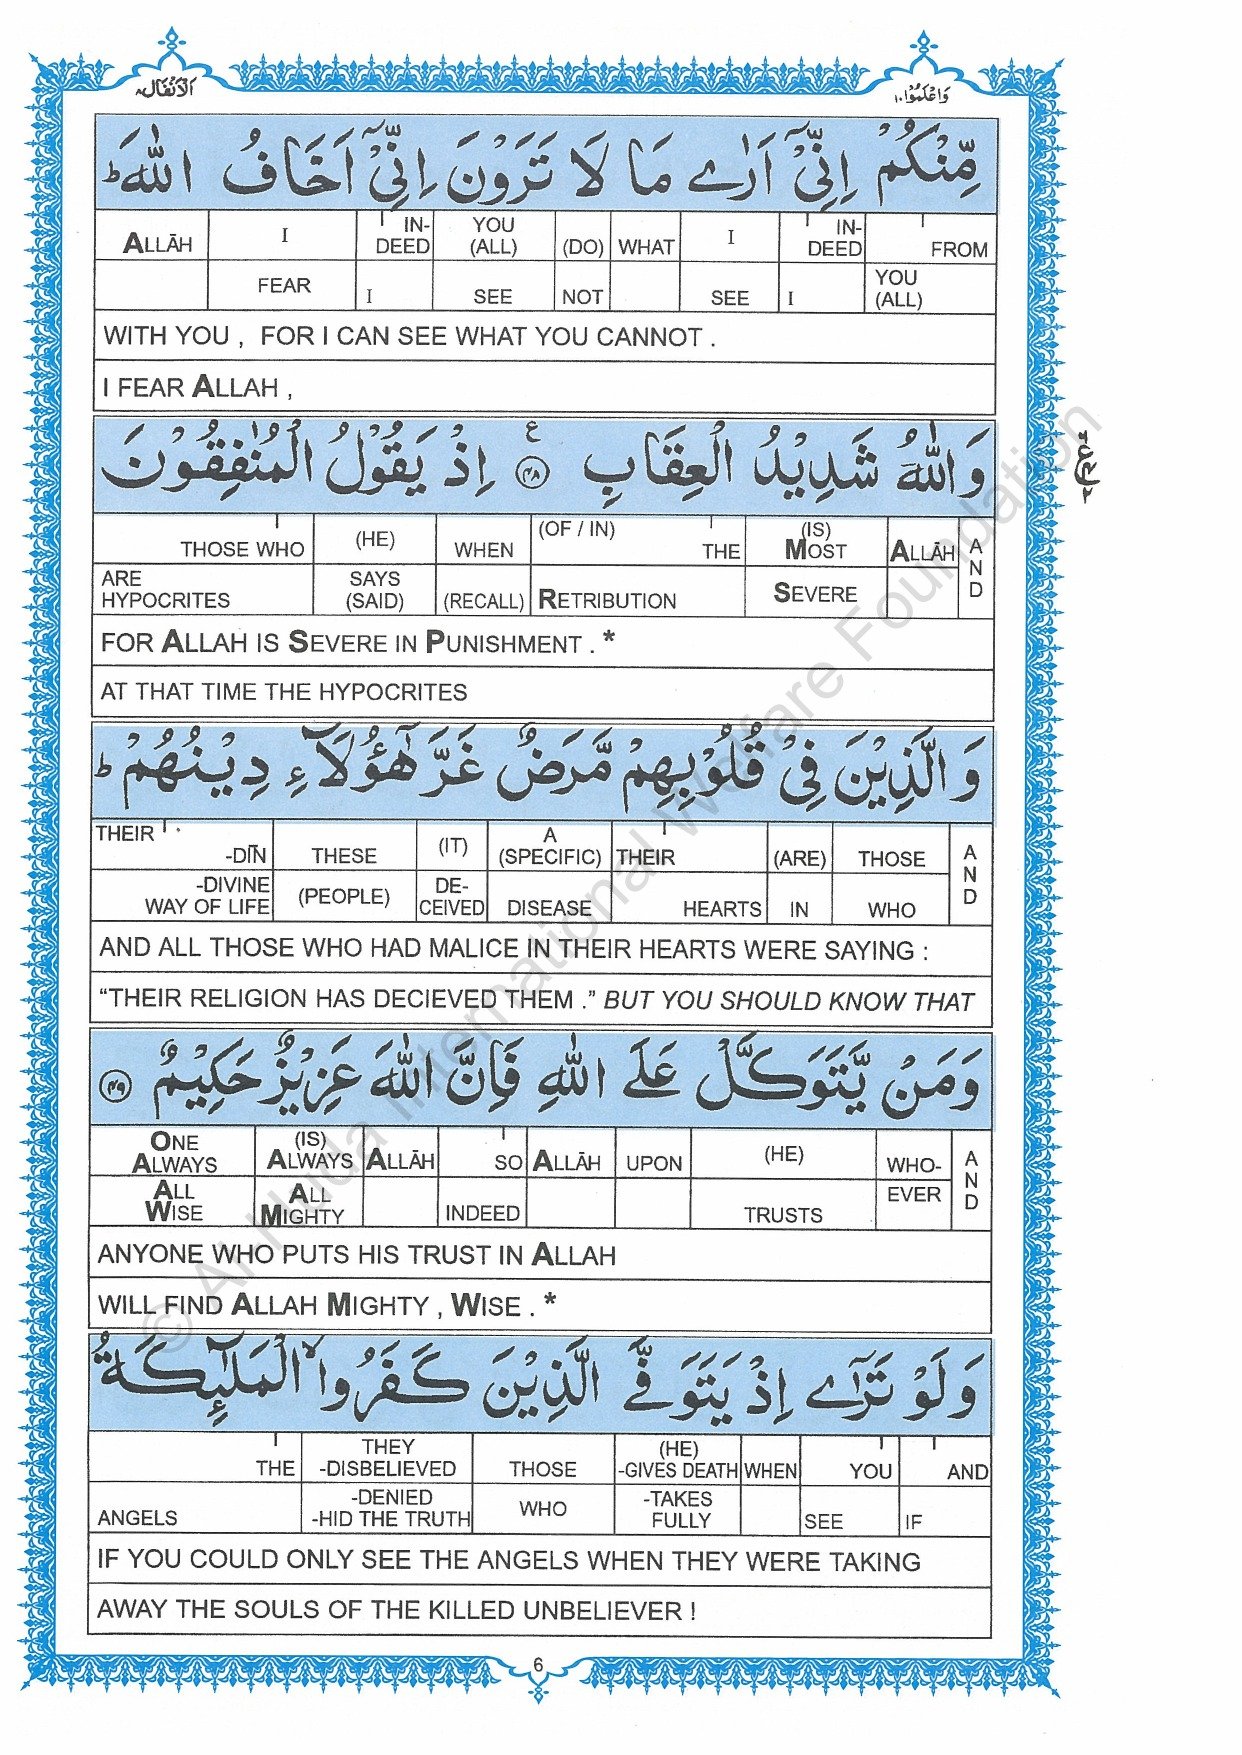 وَاعْلَمُوْۤا ١٠
اَلْاَنْفَال ٨
مِّنْكُمْ اِنِّيْۤ اَرٰے مَا لَا تَرَوْنَ اِنِّيْۤ اَخَافُ اللّٰهَ ؕ
ALLĀH | I | IN-DEED | YOU (ALL) | (DO) | WHAT | I | IN-DEED | FROM
FEAR | I | SEE | NOT | SEE | I | YOU (ALL)
WITH YOU , FOR I CAN SEE WHAT YOU CANNOT .
I FEAR ALLAH ,
وَاللّٰهُ شَدِيْدُ الْعِقَابِ ع ٤٨ اِذْ يَقُوْلُ الْمُنٰفِقُوْنَ
THOSE WHO | (HE) | WHEN | (OF / IN) THE | (IS) MOST | ALLĀH | AND
ARE HYPOCRITES | SAYS (SAID) | (RECALL) | RETRIBUTION | SEVERE
FOR ALLAH IS SEVERE IN PUNISHMENT . *
AT THAT TIME THE HYPOCRITES
وَالَّذِيْنَ فِيْ قُلُوْبِهِمْ مَّرَضٌ غَرَّ هٰۤؤُلَآءِ دِيْنُهُمْ ؕ
THEIR -DĪN | THESE | (IT) | A (SPECIFIC) | THEIR | (ARE) | THOSE | AND
-DIVINE WAY OF LIFE | (PEOPLE) | DE-CEIVED | DISEASE | HEARTS | IN | WHO
AND ALL THOSE WHO HAD MALICE IN THEIR HEARTS WERE SAYING :
“THEIR RELIGION HAS DECIEVED THEM .” BUT YOU SHOULD KNOW THAT
وَمَنْ يَّتَوَكَّلْ عَلَے اللّٰهِ فَاِنَّ اللّٰهَ عَزِيْزٌ حَكِيْمٌ ٤٩
ONE ALWAYS | (IS) ALWAYS | ALLĀH | SO | ALLĀH | UPON | (HE) | WHO- | AND
ALL WISE | ALL MIGHTY | INDEED | TRUSTS | EVER
ANYONE WHO PUTS HIS TRUST IN ALLAH
WILL FIND ALLAH MIGHTY , WISE . *
وَلَوْ تَرٰۤے اِذْ يَتَوَفَّے الَّذِيْنَ كَفَرُوا ۙ الْمَلٰٓئِكَةُ
THE | THEY -DISBELIEVED | THOSE | (HE) -GIVES DEATH | WHEN | YOU | AND
ANGELS | -DENIED -HID THE TRUTH | WHO | -TAKES FULLY | SEE | IF
IF YOU COULD ONLY SEE THE ANGELS WHEN THEY WERE TAKING
AWAY THE SOULS OF THE KILLED UNBELIEVER !
6
© Al Huda International Welfare Foundation